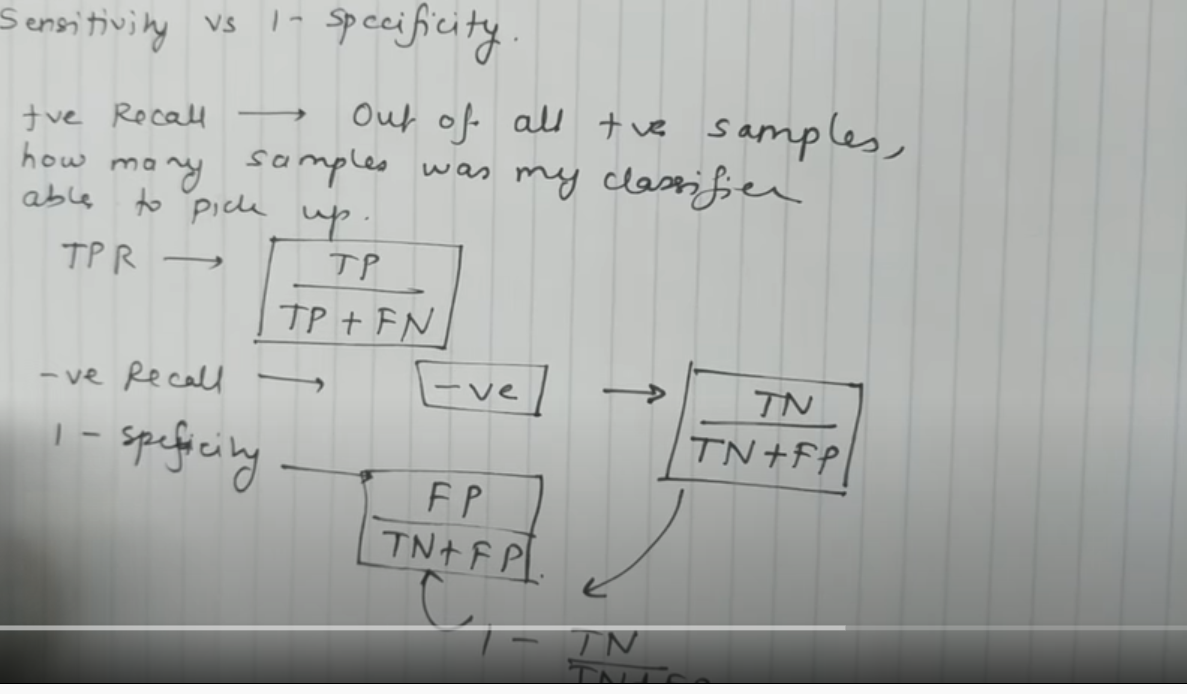 Sensitivity vs 1 - Specificity.
+ve Recall → Out of all +ve samples,
how many samples was my classifier
able to pick up.
TPR → TP
TP + FN
-ve Recall → -ve → TN
TN + FP
1 - Speficity
FP
TN + FP
1 - TN